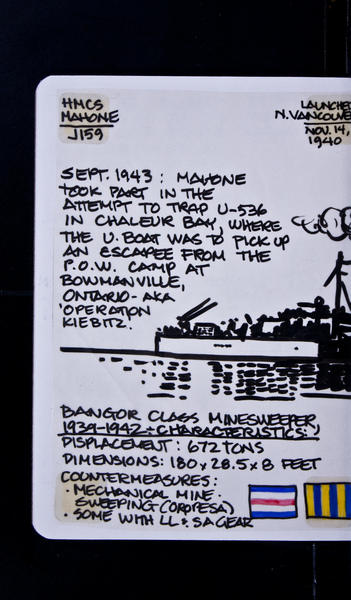 HMCS
MAHONE
J159
LAUNCHED
N.VANCOUVE
NOV. 14,
1940
SEPT. 1943 : MAHONE
TOOK PART IN THE
ATTEMPT TO TRAP U-536
IN CHALEUR BAY, WHERE
THE U.BOAT WAS TO PICK UP
AN ESCAPEE FROM THE
P.O.W. CAMP AT
BOWMANVILLE,
ONTARIO - AKA
'OPERATION
KIEBITZ.
J159
BANGOR CLASS MINESWEEPER
1939-1942 : CHARACTERISTICS :
DISPLACEMENT : 672 TONS
DIMENSIONS : 180 x 28.5 x 8 FEET
COUNTERMEASURES :
• MECHANICAL MINE
SWEEPING (OROPESA)
• SOME WITH LL & SA GEAR